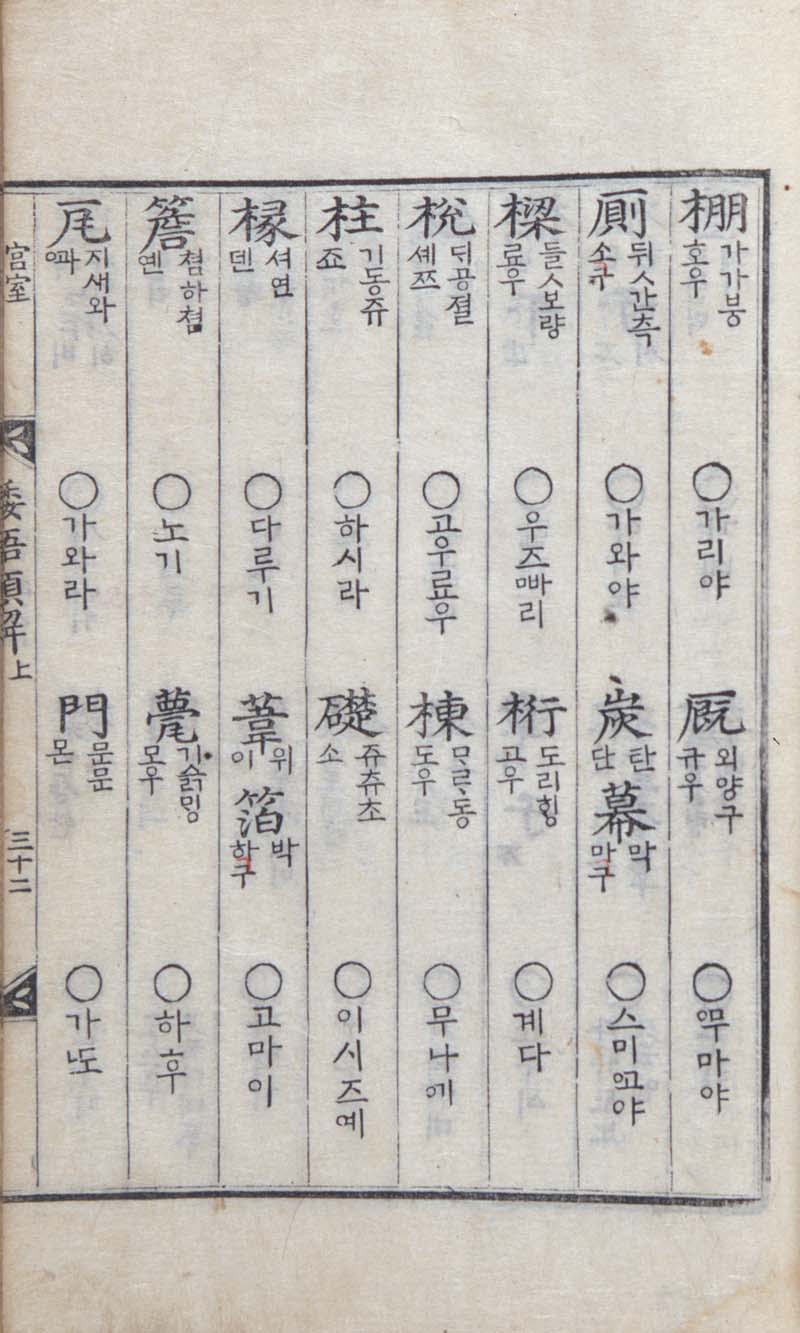 棚 가가붕 호우 ○가리야
厩 외양구 규우 ○우마야
厠 뒤ㅅ간측 소구 ○가와야
炭 탄 단 幕 막 마구 ○스미고야
樑 들ㅅ보량 료우 ○우즈빠리
桁 도리힝 고우 ○계다
梲 뒤공졀 셰쯔 ○공우료우
棟 ᄆᆞᄅᆞ동 도우 ○무나예
柱 기동쥬 죠 ○하시라
礎 쥬츄초 소 ○이시즈예
椽 셔연 뎬 ○다루기
葦 위 이 箔 박 하구 ○고마이
簷 쳠하쳠 옌 ○노기
甍 기슭ᄆᆡᆼ 모우 ○하후
瓦 지새와 ○가와라
門 문문 몬 ○가도
宮室
倭語類解 上
三十二